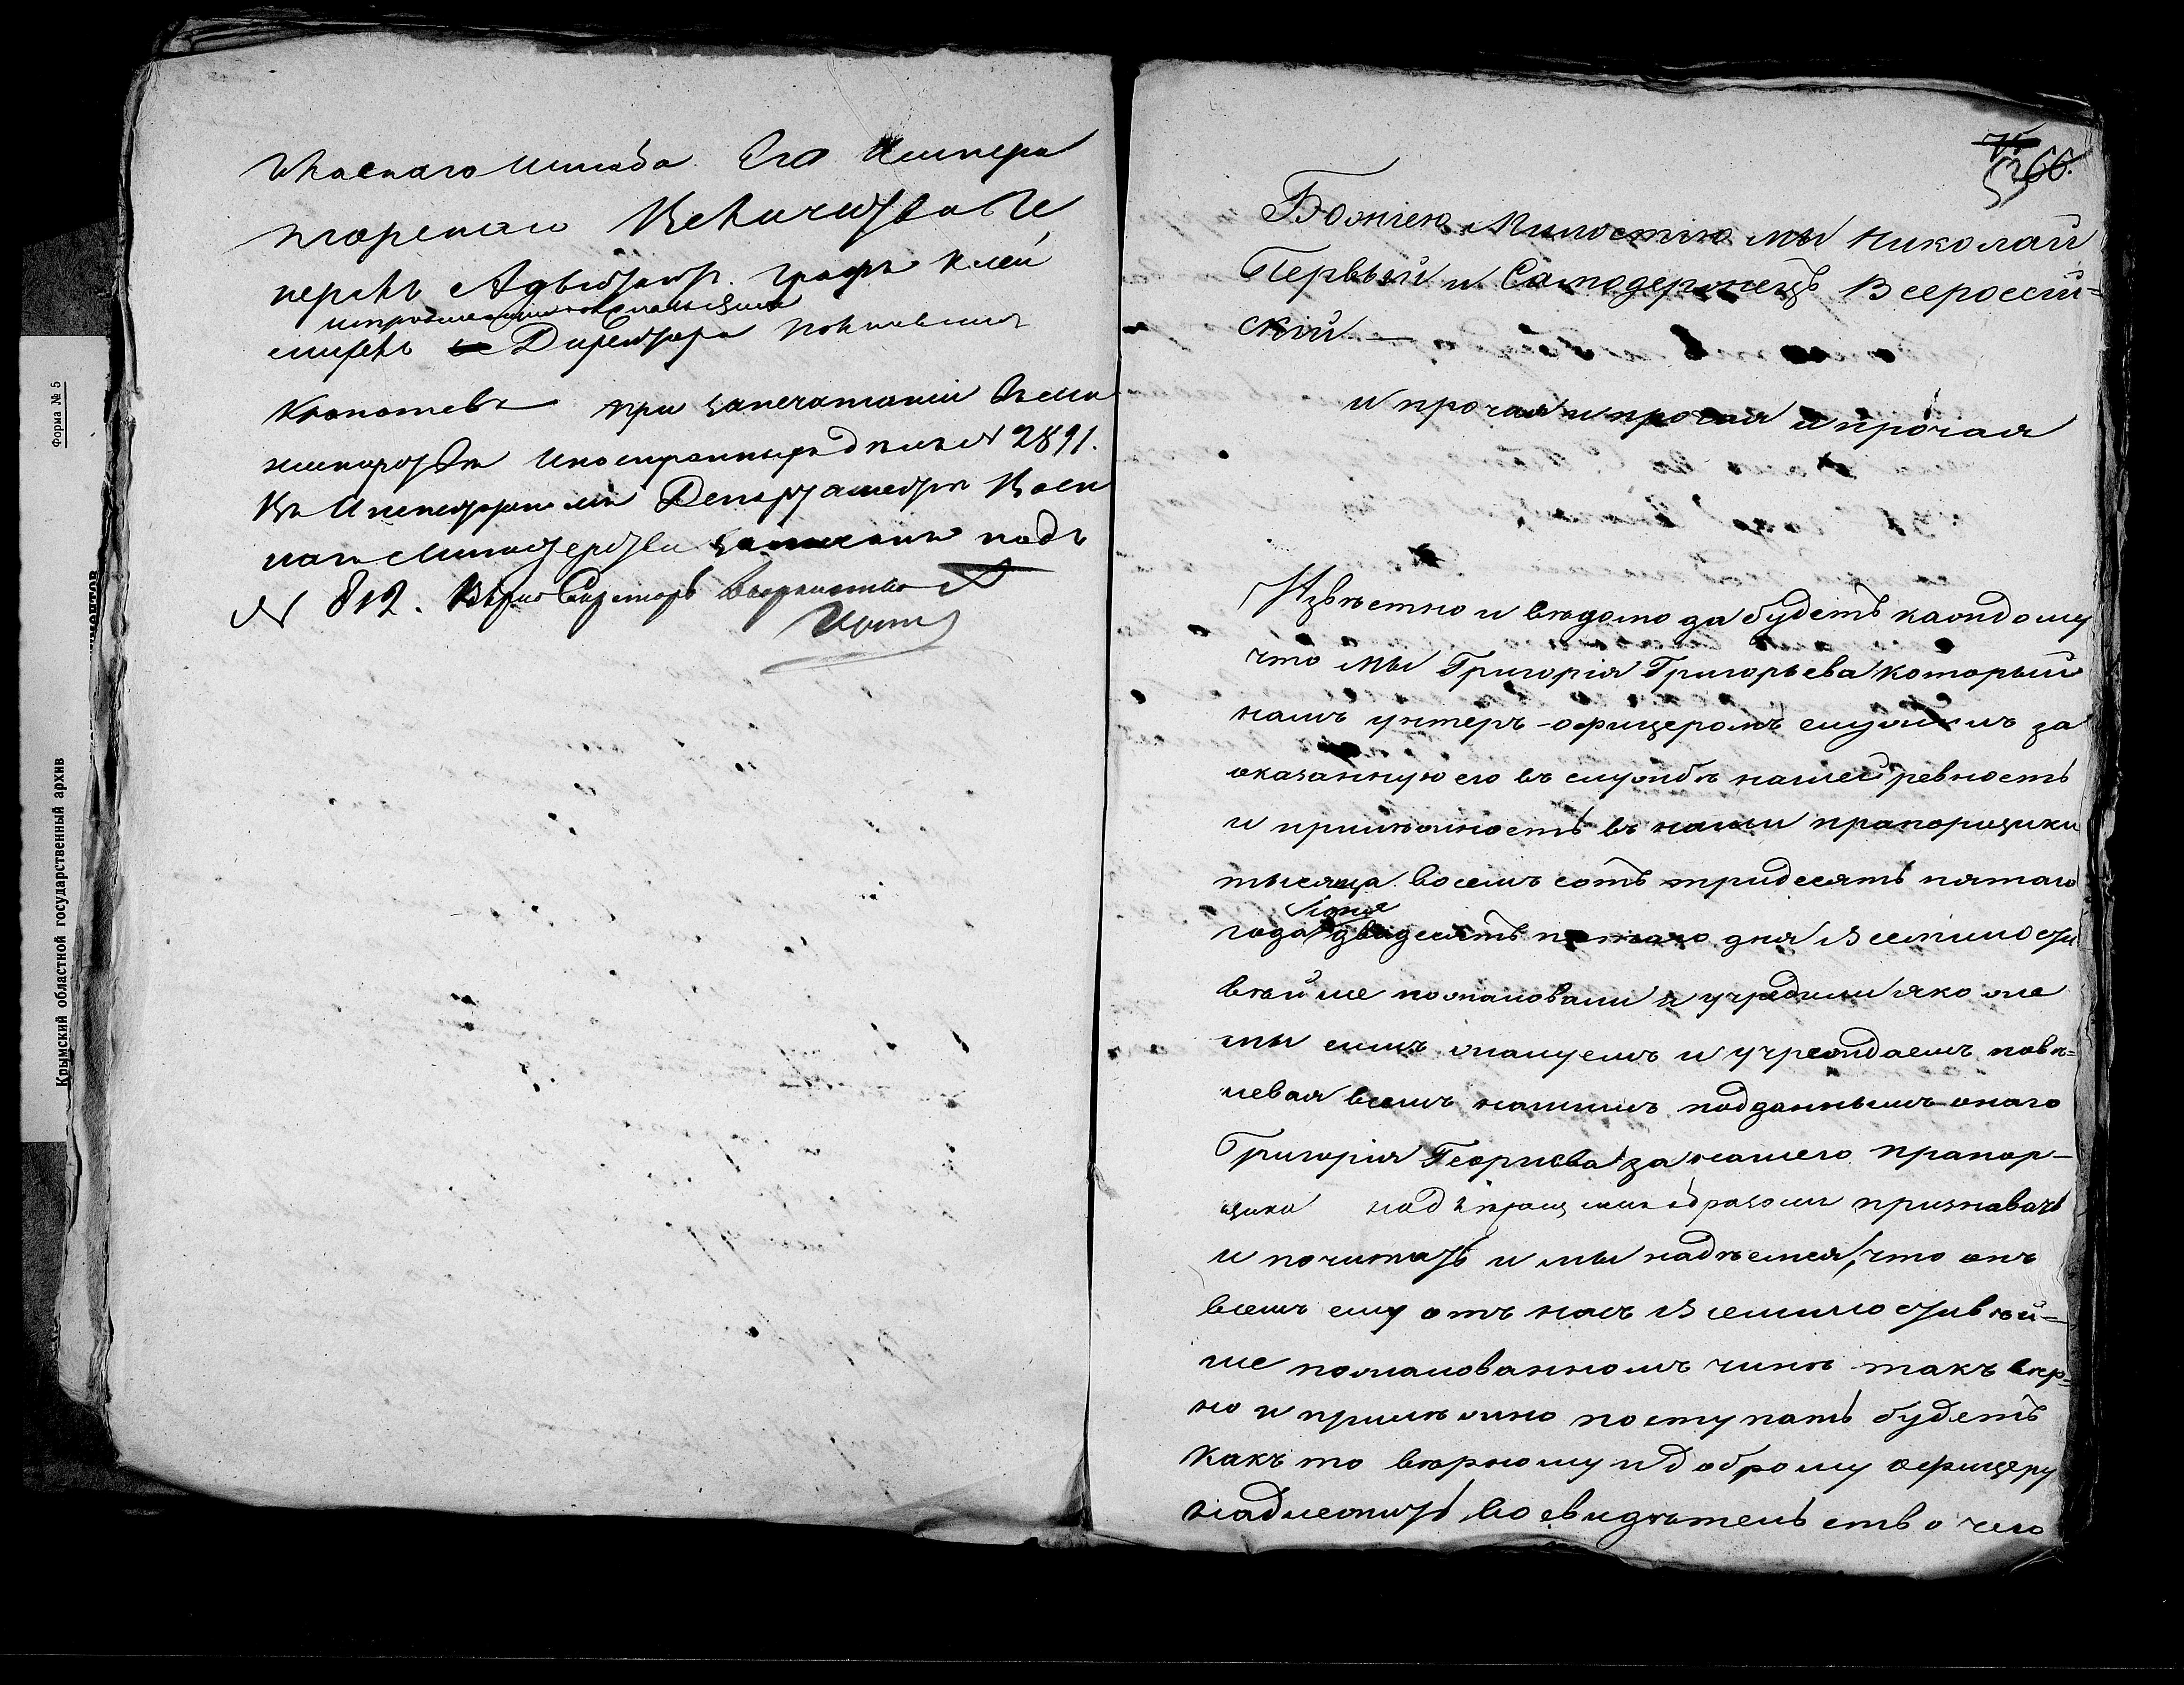 Форма № 5
Крымский областной государственный архив
Главнаго Штаба Его Импера
торскаго Величества Ге
нералъ Адъютантъ Графъ Клей
михель Директора Полковникъ
при запечатании въ Ми
нистерствѣ Иностранныхъ дѣлъ № 2891.
Въ Инспекторскомъ Департаментѣ Воен
наго Министерства записанъ подъ
№ 812. Вѣрно Секретарь Дворянства
75
53 66.
Божіею Милостію мы Николай
Первый и Самодержецъ Всероссій=
скій —
и прочая и прочая и прочая
Извѣстно и вѣдомо да будетъ каждому
что мы Григорія Григорьева который
намъ унтеръ-офицеромъ служилъ за
оказанную его въ службѣ нашей ревность
и прилѣжность въ наши прапорщики
тысяща восемь сотъ тридесять пятаго
Іюня
года двадесять пятаго дня Всемилости
вѣйше пожаловали и учредили яко же
мы симъ жалуемъ и учреждаемъ повѣ=
левая всемъ нашимъ подданнымъ онаго
Григорія Георгіева за нашего прапор-
щика надлежащимъ образомъ признавать
и почитать и мы надѣемся, что онъ
всемъ ему отъ насъ Всемилостивѣй=
ше пожалованномъ чинѣ такъ вѣр=
но и прилѣжно поступать будетъ
какъ то вѣрному и доброму офицеру
надлежитъ во свидѣтельство чего